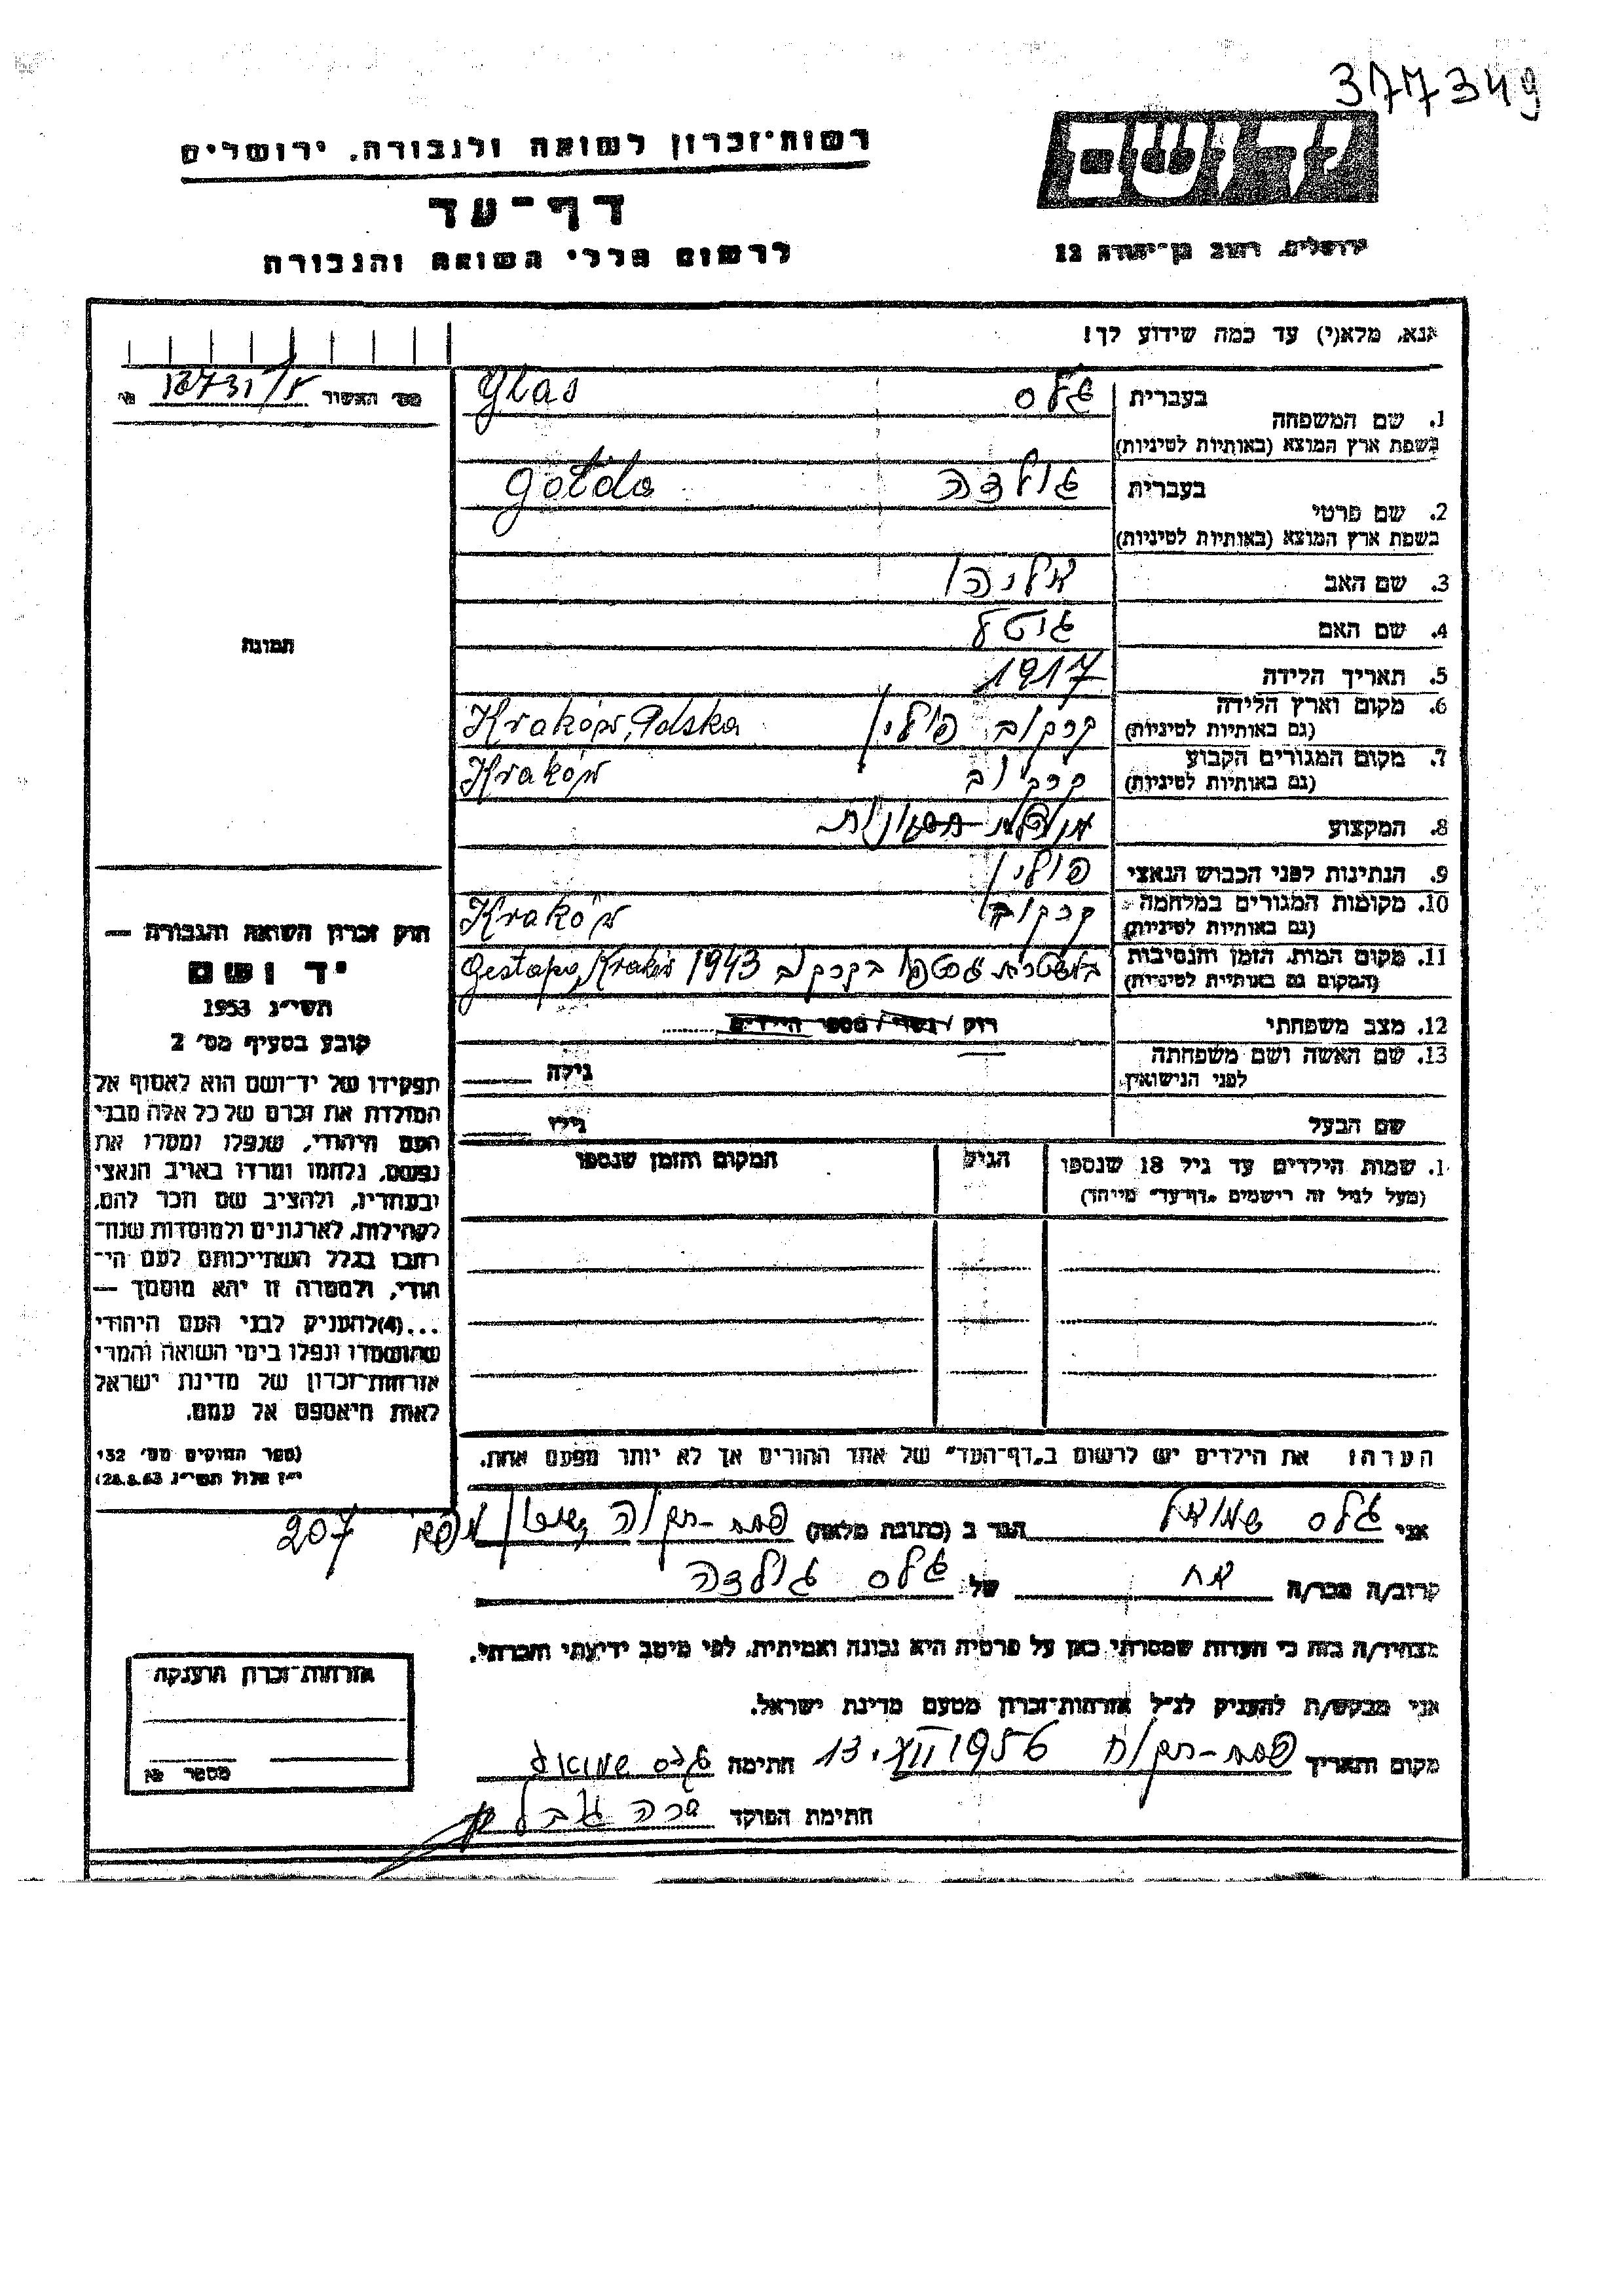 377349
רשות־זכרון לשואה ולגבורה, ירושלים
יד ושם
דף־עד
לרשום חללי השואה והגבורה
ירושלים, רחוב בן־יהודה 12
אנא, מלא(י) עד כמה שידוע לך!
מס׳ האשור
בעברית גלס Glas
1. שם המשפחה
בשפת ארץ המוצא (באותיות לטיניות)
בעברית גולדה Gołda
2. שם פרטי
בשפת ארץ המוצא (באותיות לטיניות)
3. שם האב אליהו
4. שם האם גיטל
5. תאריך הלידה 1917
6. מקום וארץ הלידה קרקוב פולין Kraków, Polska
(גם באותיות לטיניות)
7. מקום המגורים הקבוע קרקוב Kraków
(גם באותיות לטיניות)
8. המקצוע
9. הנתינות לפני הכבוש הנאצי פולין
10. מקומות המגורים במלחמה קרקוב Kraków
(גם באותיות לטיניות)
11. מקום המות, הזמן והנסיבות במשטרת גסטפו בקרקוב 1943 Gestapo, Kraków
(המקום גם באותיות לטיניות)
12. מצב משפחתי רוק / נשוי / מספר הילדים
13. שם האשה ושם משפחתה
לפני הנישואין גילה
שם הבעל גילו
1. שמות הילדים עד גיל 18 שנספו הגיל המקום והזמן שנספו
(מעל לגיל זה רישמים „דף־עד״ מיוחד)
הערה: את הילדים יש לרשום ב„דף־העד״ של אחד ההורים אך לא יותר מפעם אחת.
תמונה
חוק זכרון השואה והגבורה —
יד ושם
תשי״ג 1953
קובע בסעיף מס׳ 2
תפקידו של יד־ושם הוא לאסוף אל
המולדת את זכרם של כל אלה מבני
העם היהודי, שנפלו ומסרו את
נפשם, נלחמו ומרדו באויב הנאצי
ובעוזריו, ולהציב שם וזכר להם,
לקהילות, לארגונים ולמוסדות שנח־
רבו בגלל השתייכותם לעם הי־
הודי, ולמטרה זו יהא מוסמך —
...(4) להעניק לבני העם היהודי
שהושמדו ונפלו בימי השואה והמרי
אזרחות־זכרון של מדינת ישראל
לאות היאספם אל עמם.
(ספר החוקים מס׳ 132
י״ז אלול תשי״ג 28.8.53)
אני גלס שמואל הגר ב (כתובת מלאה) פתח-תקוה 207
קרוב/ה מכר/ה אח של גלס גולדה
מצהיר/ה בזה כי העדות שמסרתי כאן על פרטיה היא נכונה ואמיתית, לפי מיטב ידיעתי והכרתי.
אני מבקש/ת להעניק לנ״ל אזרחות־זכרון מטעם מדינת ישראל.
מקום ותאריך פתח-תקוה 13.XII.1956 חתימה גלס שמואל
חתימת הפוקד שרה
אזרחות־זכרון הוענקה
מספר